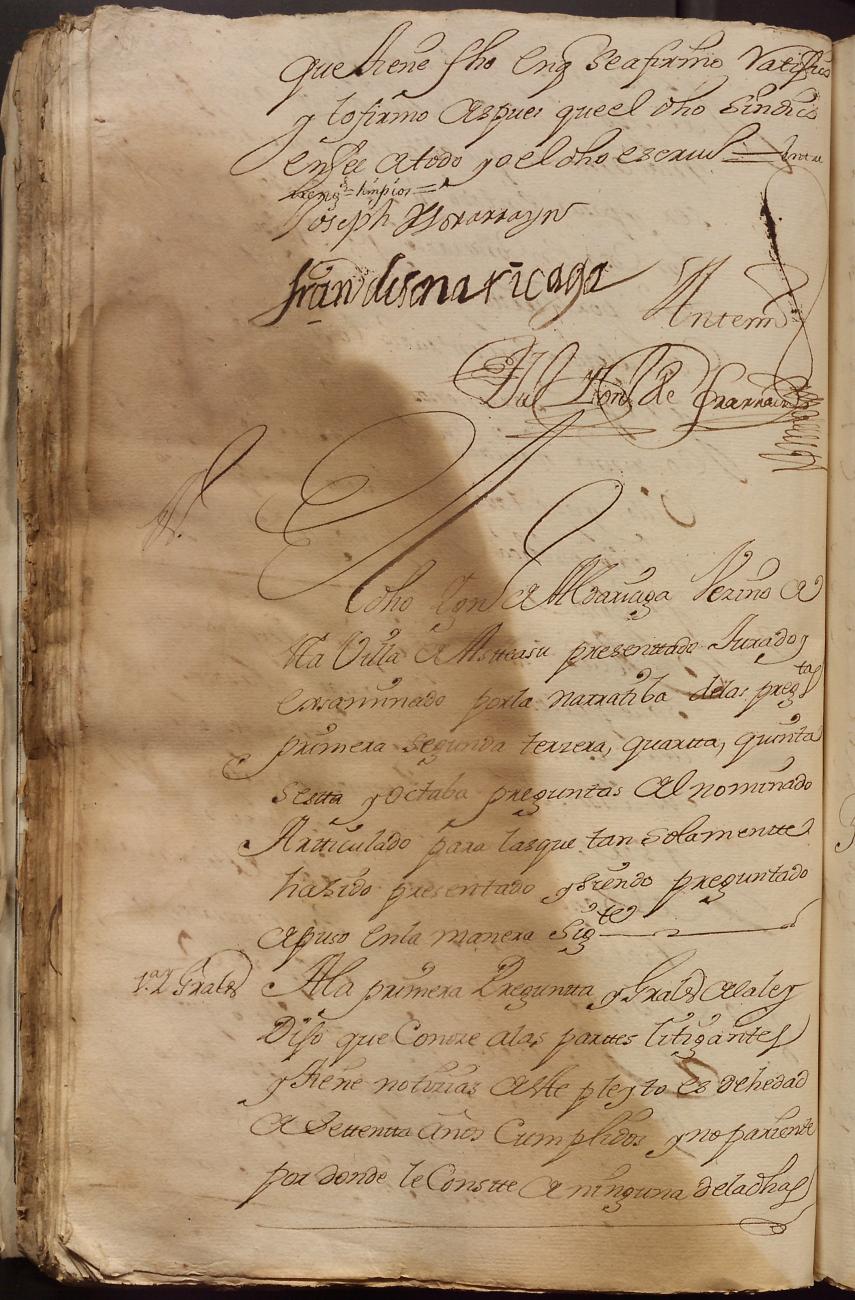 que tiene fho en q se afirmo Ratifico
y lo firmo despues que el dho sindico
en fee de todo yo el dho escriu entre
Reng limpios
Joseph
fran de
Antemi
de
El
dho Don de Aldariaga Vezino de
tta Villa de Astteasu presenttado Jurado y
exsaminado por la narratiba de las preg tas
primera segunda terzera, quartta, quinta
Sestta y Octaba preguntas del nominado
Artticulado para las que tan solamentte
ha sido presentado y siendo preguntado
depuso en la manera sig te
1.a y Grales A la primera Preguntta y Grales de la ley
Dijo que Conoze a las parttes litigantes
y tiene notizias deste pleyto es de hedad
de Settentta años Cumplidos y no pariente
por donde le Constte de ninguna de la dhas